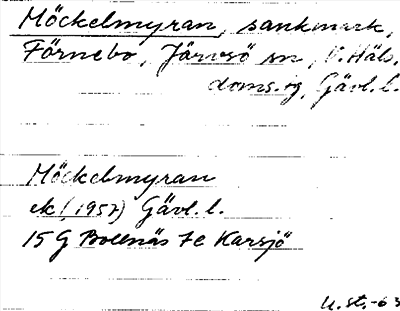 Möckelmyran, sankmark,
Förnebo, Järvsö sn, V. Häls.
doms.rg, Gävl. l.
Möckelmyran
ek (1957) Gävl. l.
15 G Bollnäs 7e Karsjö
U. st. -63